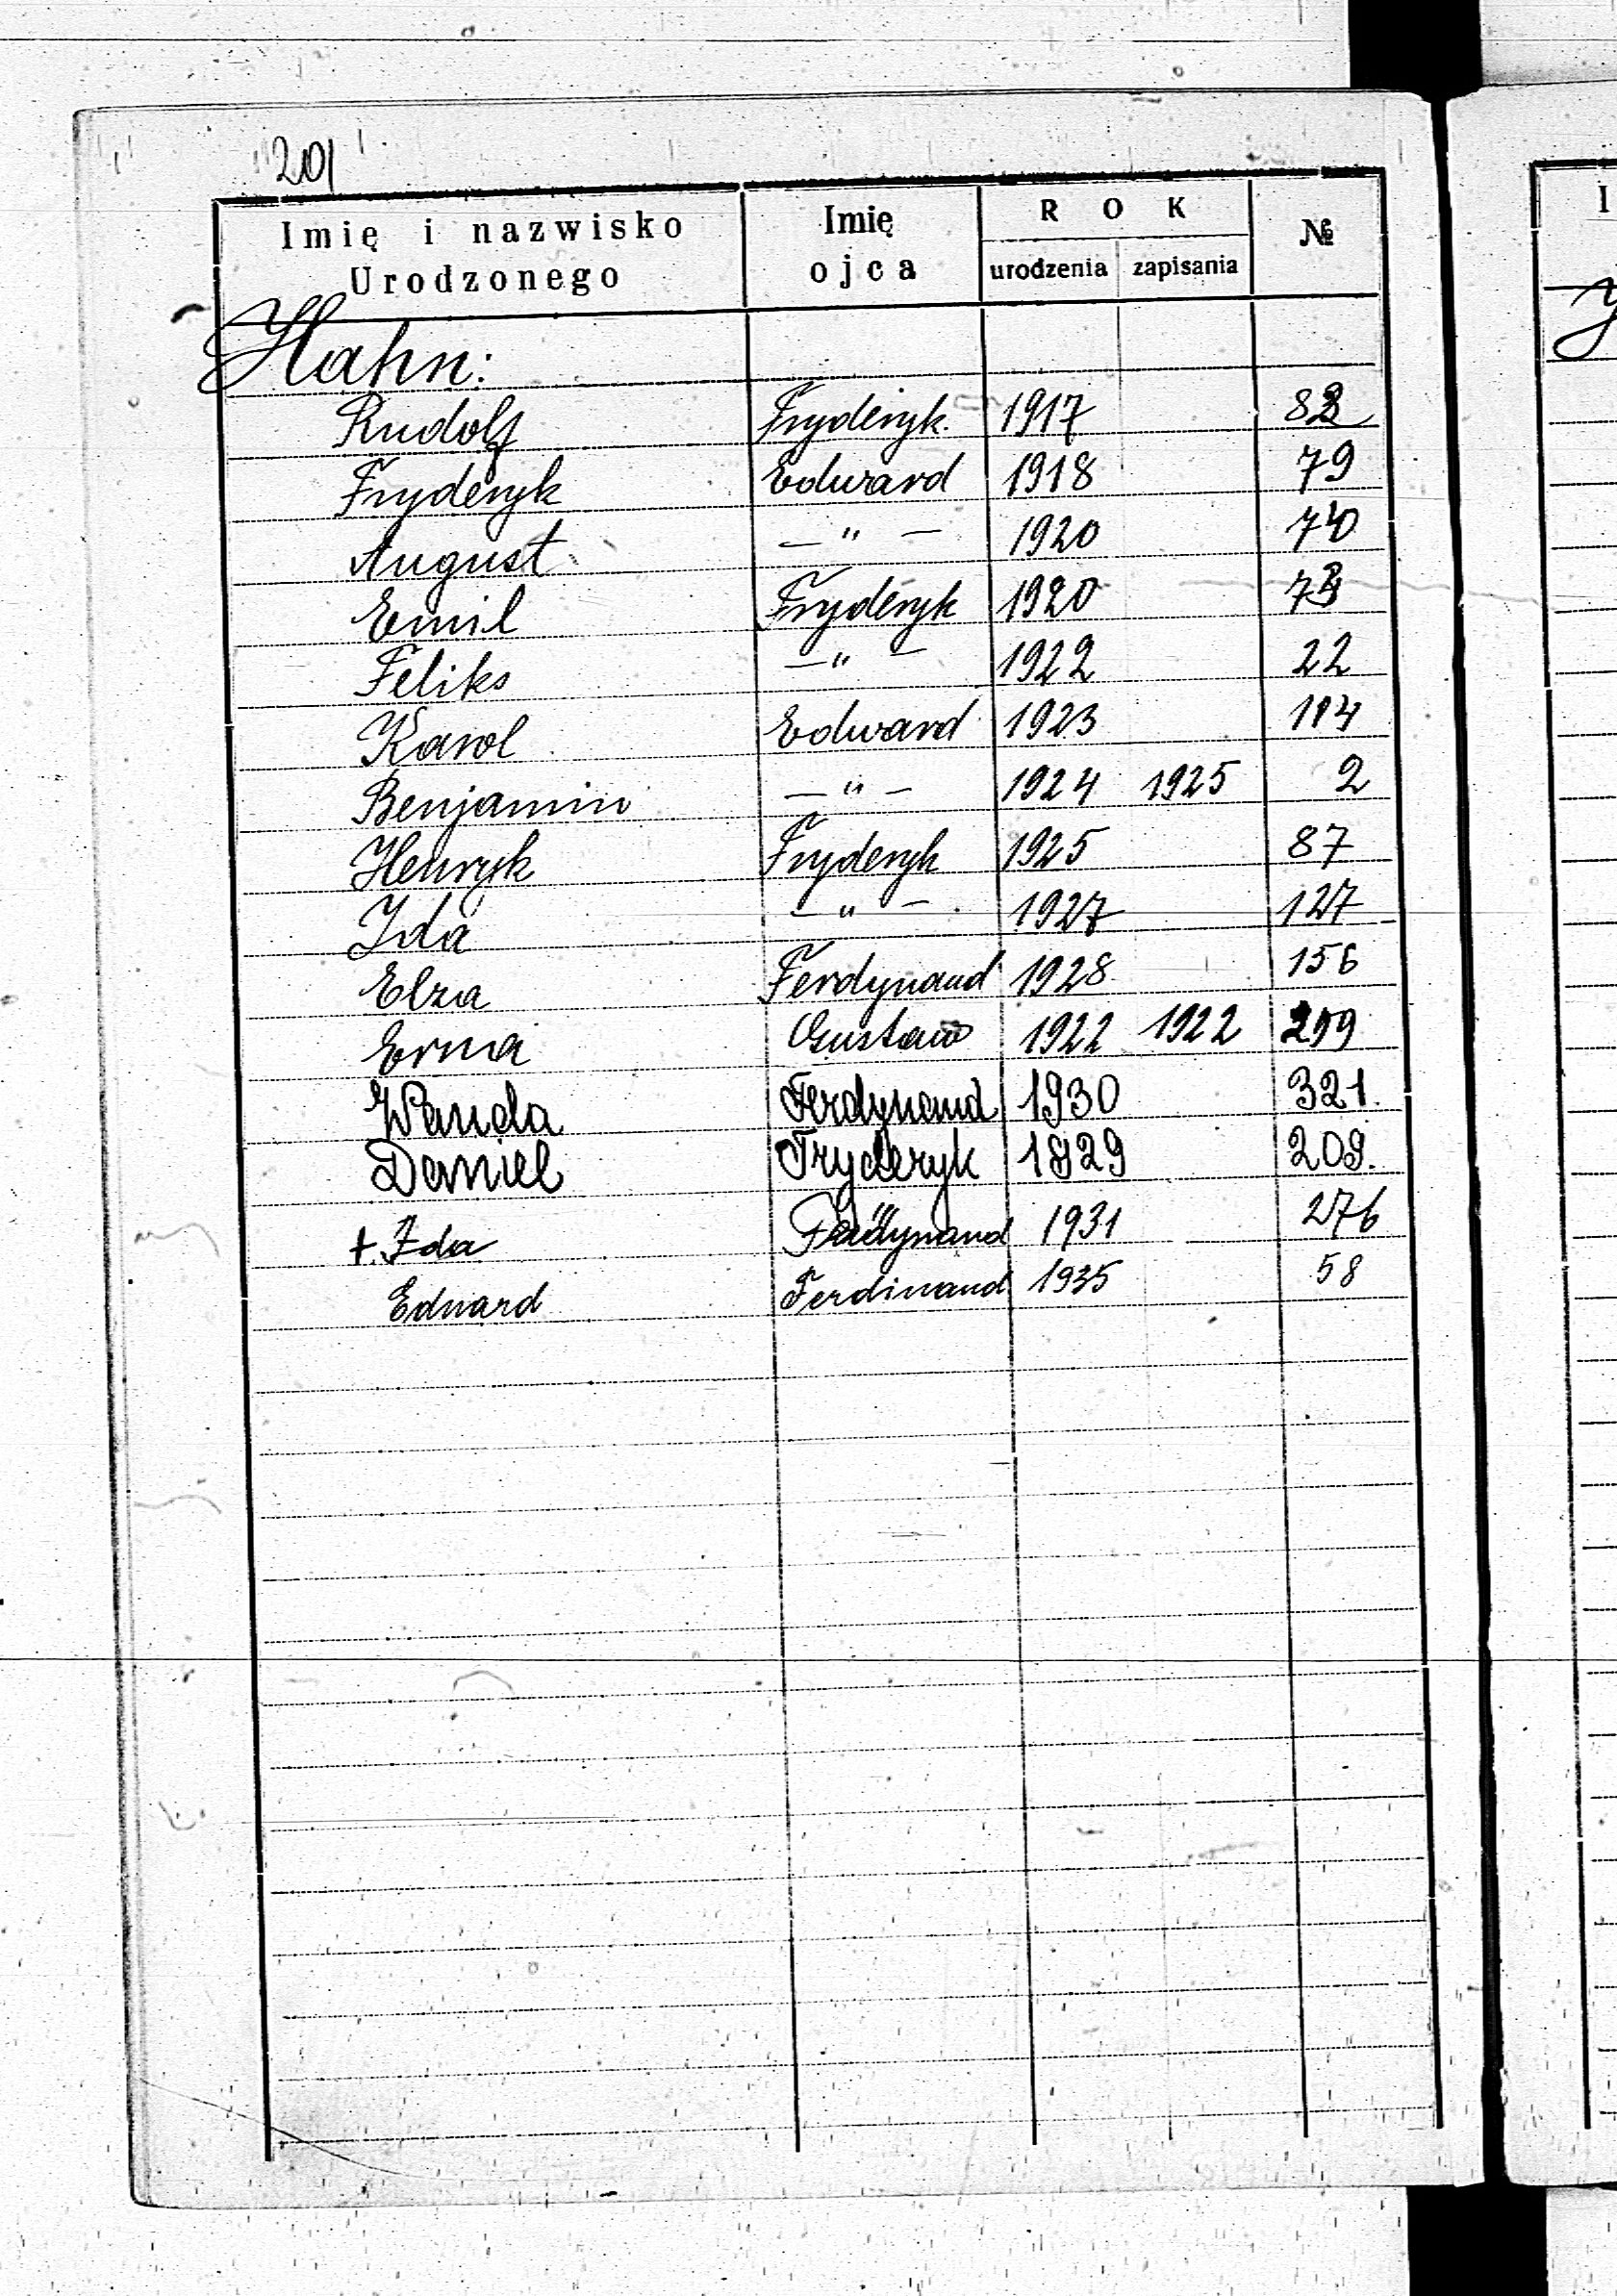 201
Imię i nazwisko Urodzonego Imię ojca ROK urodzenia zapisania №
Hahn:
Rudolf Fryderyk. 1917
Fryderyk Edward 1918 79
August — " — 1920
Emil Fryderyk 1920
Feliks — " — 1922 22
Karol Edward 1923 114
Benjamin — " — 1924 1925 2
Henryk Fryderyk 1925 87
Ida — " — 1927 127
Elza Ferdynand 1928 156
Erna Gustaw 1922 1922
Wanda Ferdynand 1930 321.
Daniel Fryderyk 1929 209.
+. Ida Ferdynand 1931 276
Edward Ferdinand 1935 58